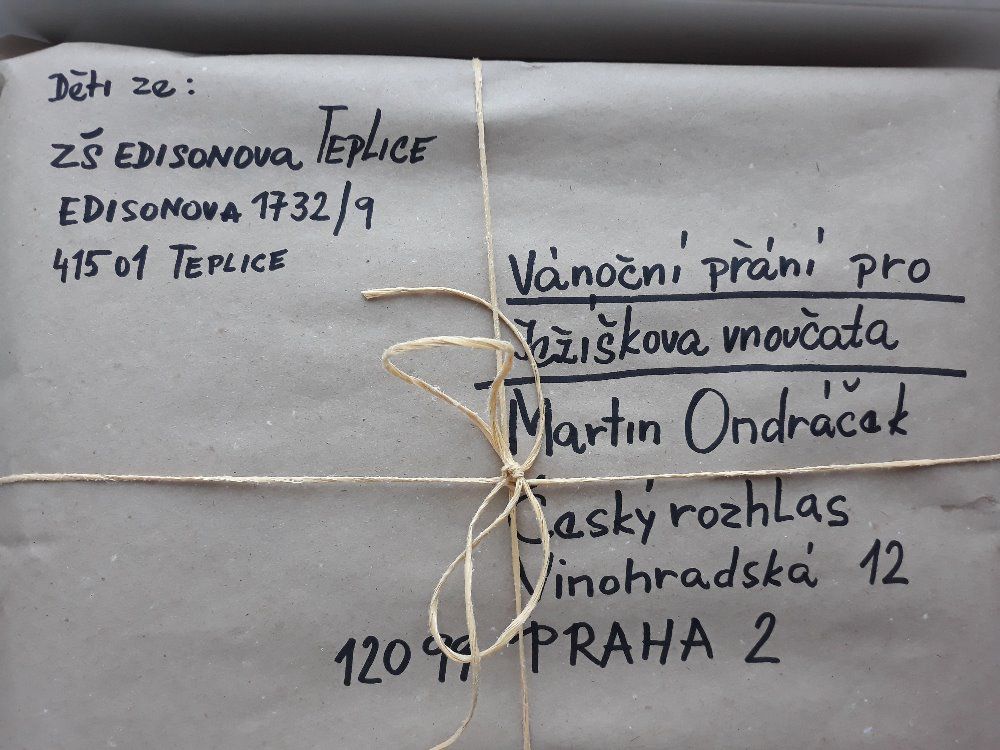 Děti ze:
ZŠ EDISONOVA TEPLICE
EDISONOVA 1732/9
41501 TEPLICE
Vánoční přání pro
Ježíškova vnoučata
Martin Ondráček
Český rozhlas
Vinohradská 12
12099 PRAHA 2